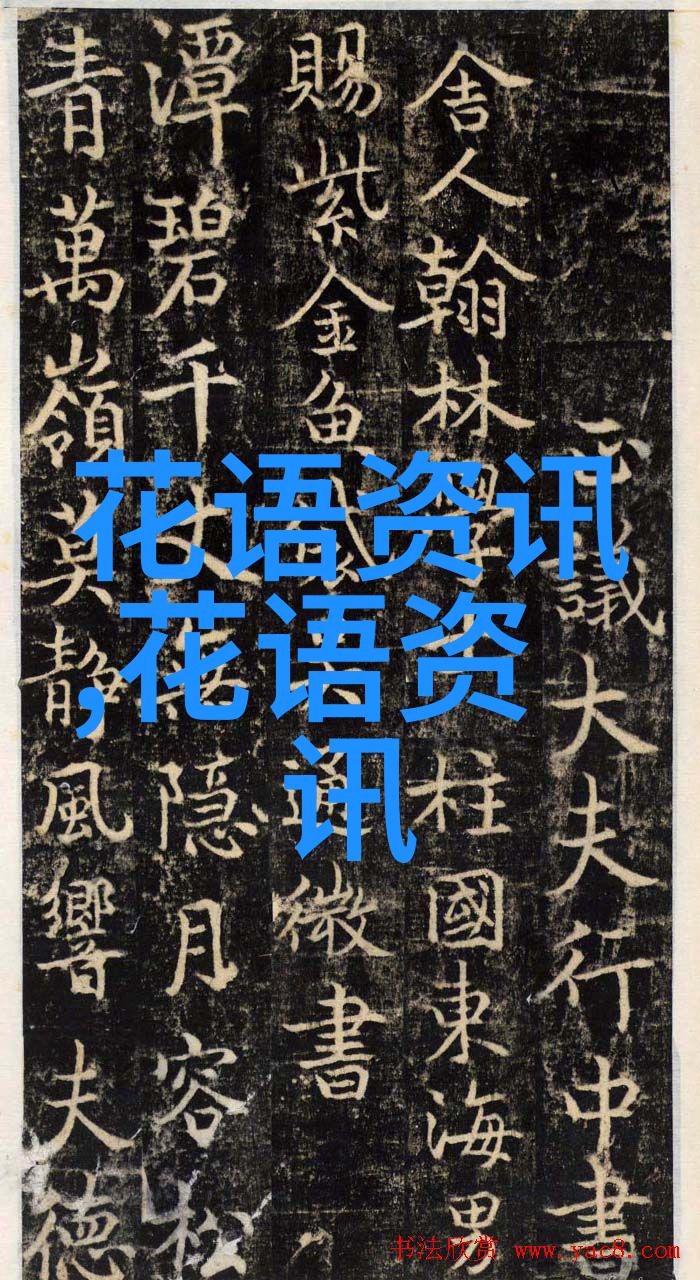 花语资讯
,花语资
讯
正議大夫行中書
舍人翰林學柱國東海男
賜紫金魚袋通微書
潭碧千丈隐月容松
青萬嶺莫静風響夫德
书法欣赏 www.yac8.com